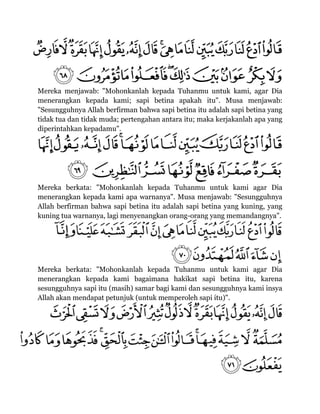 قَالُوا۟ ٱدْعُ لَنَا رَبَّكَ يُبَيِّن لَّنَا مَا هِىَ ۚ قَالَ إِنَّهُۥ يَقُولُ إِنَّهَا بَقَرَةٌ لَّا فَارِضٌ
وَلَا بِكْرٌ عَوَانٌۢ بَيْنَ ذَٰلِكَ ۖ فَٱفْعَلُوا۟ مَا تُؤْمَرُونَ ٦٨
Mereka menjawab: "Mohonkanlah kepada Tuhanmu untuk kami, agar Dia
menerangkan kepada kami; sapi betina apakah itu". Musa menjawab:
"Sesungguhnya Allah berfirman bahwa sapi betina itu adalah sapi betina yang
tidak tua dan tidak muda; pertengahan antara itu; maka kerjakanlah apa yang
diperintahkan kepadamu".
قَالُوا۟ ٱدْعُ لَنَا رَبَّكَ يُبَيِّن لَّنَا مَا لَوْنُهَا ۚ قَالَ إِنَّهُۥ يَقُولُ إِنَّهَا
بَقَرَةٌ صَفْرَآءُ فَاقِعٌ لَّوْنُهَا تَسُرُّ ٱلنَّٰظِرِينَ ٦٩
Mereka berkata: "Mohonkanlah kepada Tuhanmu untuk kami agar Dia
menerangkan kepada kami apa warnanya". Musa menjawab: "Sesungguhnya
Allah berfirman bahwa sapi betina itu adalah sapi betina yang kuning, yang
kuning tua warnanya, lagi menyenangkan orang-orang yang memandangnya".
قَالُوا۟ ٱدْعُ لَنَا رَبَّكَ يُبَيِّن لَّنَا مَا هِىَ إِنَّ ٱلْبَقَرَ تَشَٰبَهَ عَلَيْنَا وَإِنَّآ
إِن شَآءَ ٱللَّهُ لَمُهْتَدُونَ ٧٠
Mereka berkata: "Mohonkanlah kepada Tuhanmu untuk kami agar Dia
menerangkan kepada kami bagaimana hakikat sapi betina itu, karena
sesungguhnya sapi itu (masih) samar bagi kami dan sesungguhnya kami insya
Allah akan mendapat petunjuk (untuk memperoleh sapi itu)".
قَالَ إِنَّهُۥ يَقُولُ إِنَّهَا بَقَرَةٌ لَّا ذَلُولٌ تُثِيرُ ٱلْأَرْضَ وَلَا تَسْقِى ٱلْحَرْثَ
مُسَلَّمَةٌ لَّا شِيَةَ فِيهَا ۚ قَالُوا۟ ٱلْـَٰٔنَ جِئْتَ بِٱلْحَقِّ ۚ فَذَبَحُوهَا وَمَا كَادُوا۟
يَفْعَلُونَ ٧١